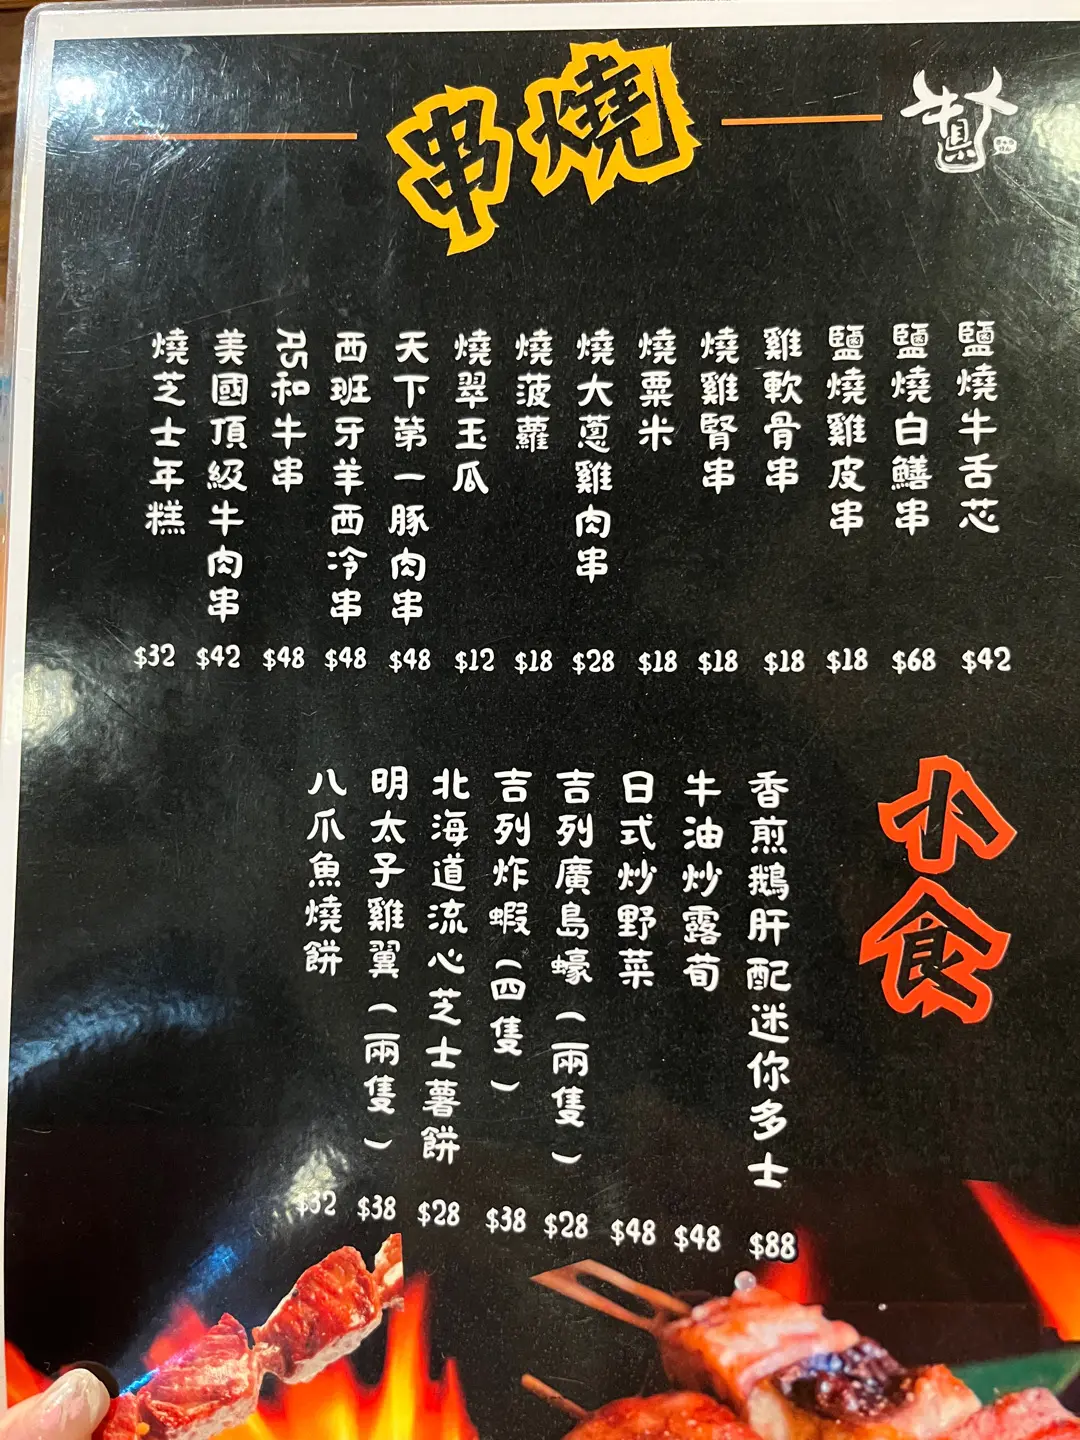 串燒
牛真人
鹽燒牛舌芯
$42
鹽燒白鱔串
$68
鹽燒雞皮串
$18
雞軟骨串
$18
燒雞腎串
$18
燒粟米
$18
燒大蔥雞肉串
$28
燒菠蘿
$18
燒翠玉瓜
$12
天下第一豚肉串
$48
西班牙羊西冷串
$48
A5和牛串
$48
美國頂級牛肉串
$42
燒芝士年糕
$32
小食
香煎鵝肝配迷你多士
$88
牛油炒露荀
$48
日式炒野菜
$48
吉列廣島蠔(兩隻)
$28
吉列炸蝦(四隻)
$38
北海道流心芝士薯餅
$28
明太子雞翼(兩隻)
$38
八爪魚燒餅
$32